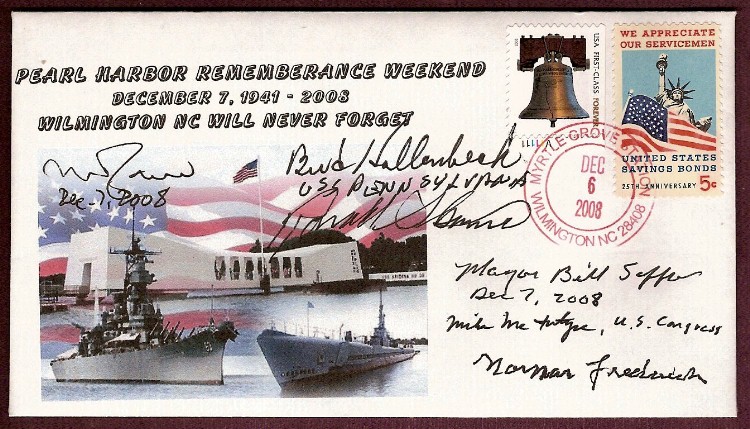 PEARL HARBOR REMEMBERANCE WEEKEND
DECEMBER 7, 1941 - 2008
WILMINGTON NC WILL NEVER FORGET
USA FIRST-CLASS FOREVER
WE APPRECIATE
OUR SERVICEMEN
UNITED STATES
SAVINGS BONDS
25TH ANNIVERSARY 5c
MYRTLE GROVE STATION
DEC
6
2008
WILMINGTON NC 28409
Dec-7, 2008
Bud Hollenbeck
USS PENNSYLVANIA
Mayor Bill Saffo
Dec 7, 2008
Mike McIntyre, U.S. Congress
Norman Frederick